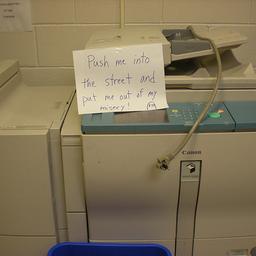 Push me into
the street and
put me out of my
misery!
Canon